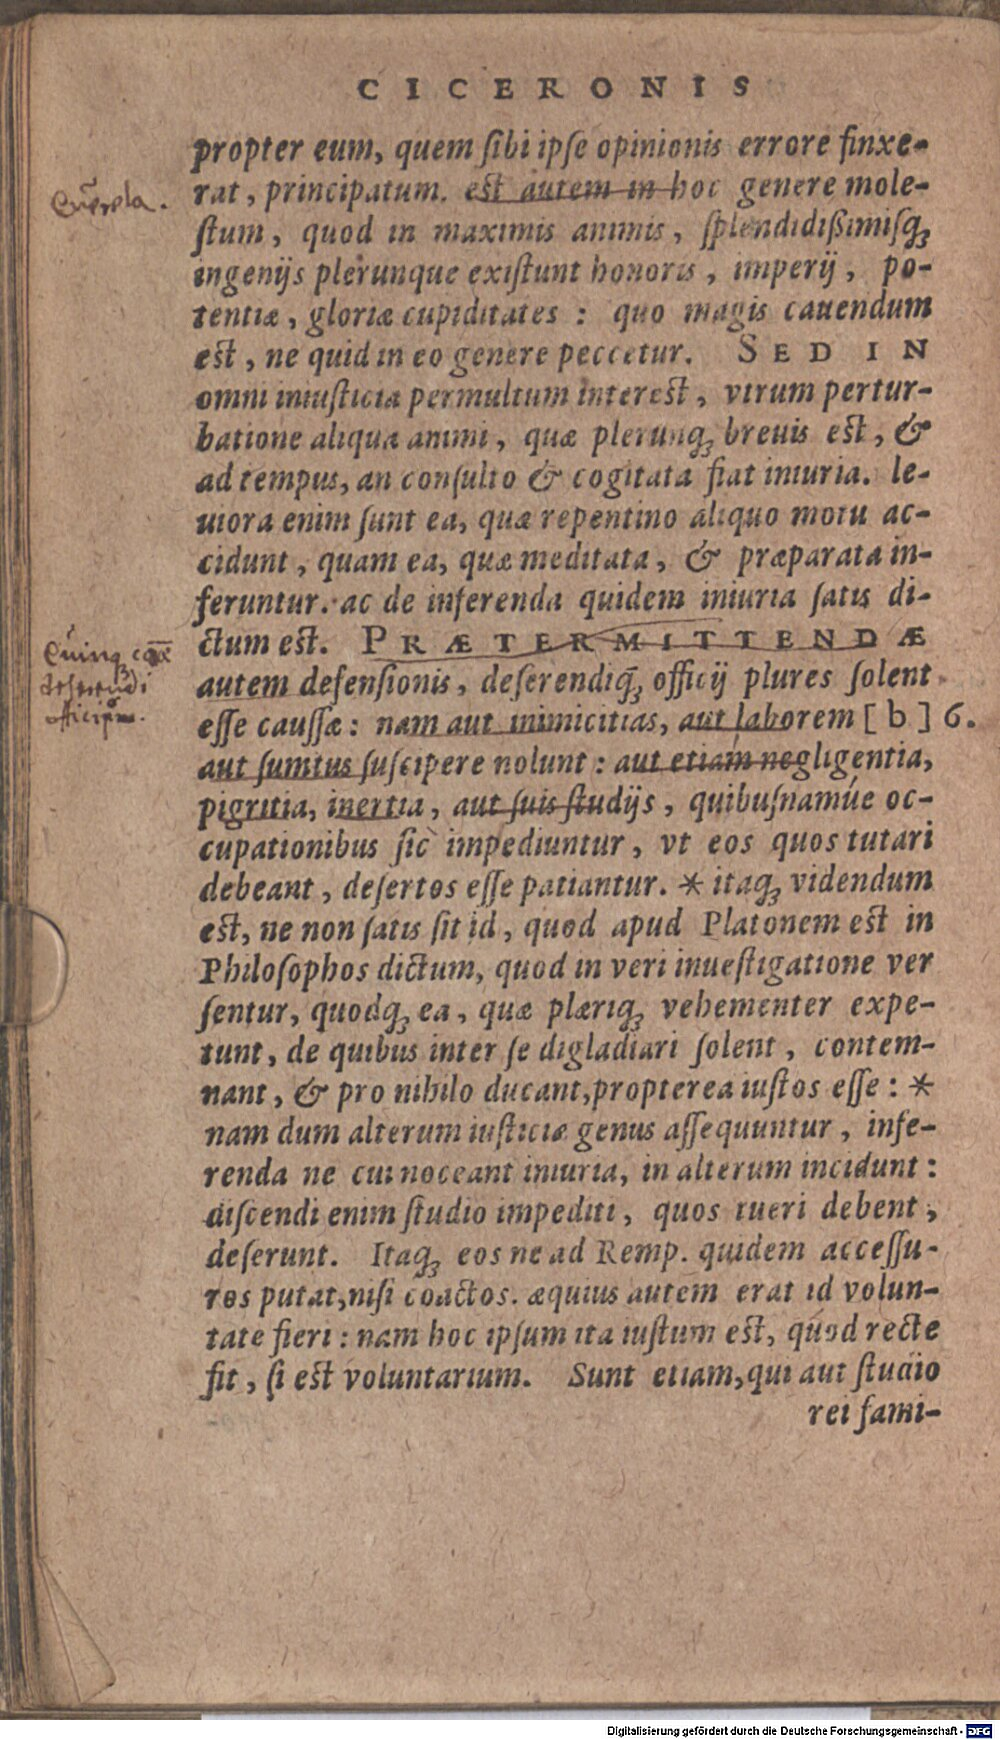 CICERONIS
propter eum, quem ſibi ipſe opinionis errore finxe-
rat, principatum. est autem in hoc genere mole-
ſtum, quod in maximis animis, ſplendidißimiſq́;
ingenijs plerunque exiſtunt honoris, imperij, po-
tentiæ, gloriæ cupiditates : quo magis cauendum
est, ne quid in eo genere peccetur. SED IN
omni iniuſticia permultum interest, vtrum pertur-
batione aliqua animi, quæ plerunq; breuis est, &
ad tempus, an conſulto & cogitata fiat iniuria. le-
uiora enim ſunt ea, quæ repentino aliquo motu ac-
cidunt, quam ea, quæ meditata, & præparata in-
feruntur. ac de inferenda quidem iniuria ſatis di-
ctum est. PRÆTERMITTENDÆ
autem defenſionis, deſerendiq́; officij plures ſolent
eſſe cauſſæ: nam aut inimicitias, aut laborem [b] 6.
aut ſumtus ſuſcipere nolunt : aut etiam negligentia,
pigritia, inertia, aut ſuis ſtudijs, quibuſnamúe oc-
cupationibus ſic impediuntur, vt eos quos tutari
debeant, deſertos eſſe patiantur. * itaq; videndum
est, ne non ſatis ſit id, quod apud Platonem est in
Philoſophos dictum, quod in veri inueſtigatione ver
ſentur, quodq; ea, quæ plæriq; vehementer expe-
tunt, de quibus inter ſe digladiari ſolent, contem-
nant, & pro nihilo ducant, propterea iuſtos eſſe : *
nam dum alterum iuſticiæ genus aſſequuntur, infe-
renda ne cui noceant iniuria, in alterum incidunt :
diſcendi enim ſtudio impediti, quos tueri debent,
deſerunt. Itaq; eos ne ad Remp. quidem acceſſu-
ros putat, niſi coactos. æquius autem erat id volun-
tate fieri : nam hoc ipſum ita iuſtum est, quod recte
fit, ſi est voluntarium. Sunt etiam, qui aut ſtudio
rei fami-
Digitalisierung gefördert durch die Deutsche Forschungsgemeinschaft - DFG